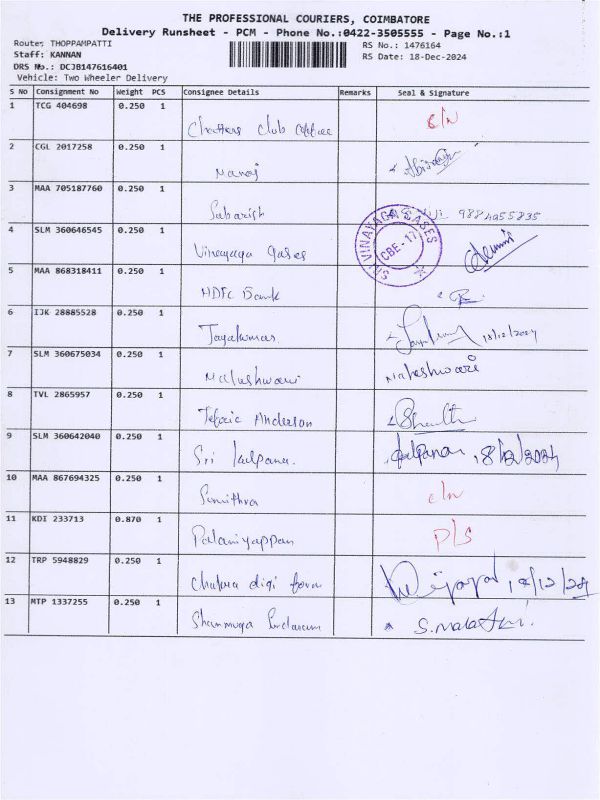 THE PROFESSIONAL COURIERS, COIMBATORE
Delivery Runsheet - PCM - Phone No.:0422-3505555 - Page No.:1
Route: THOPPAMPATTI
RS No.: 1476164
Staff: KANNAN
RS Date: 18-Dec-2024
DRS No.: DCJB147616401
Vehicle: Two Wheeler Delivery
S No Consignment No Weight PCS Consignee Details Remarks Seal & Signature
1 TCG 404698 0.250 1 Club
2 CGL 2017258 0.250 1 Manoj
3 MAA 705187760 0.250 1 Sabarish
4 SLM 360646545 0.250 1 Vinayaga Gases
SRI VINAYAGA GASES
CBE-17
5 MAA 868318411 0.250 1 HDFC Bank
6 IJK 28885528 0.250 1 Jayakumar 18/12/2024
7 SLM 360675034 0.250 1 Maheshwari Maheshwari
8 TVL 2865957 0.250 1 Anderson
9 SLM 360642040 0.250 1 Sri kalpana. kalpana, 18/12/2024
10 MAA 867694325 0.250 1 Sumithra
11 KDI 233713 0.870 1 Palaniyappan P/S
12 TRP 5948829 0.250 1 Chakra digi 18/12/24
13 MTP 1337255 0.250 1 Shanmuga Sundaram S. Malathi.